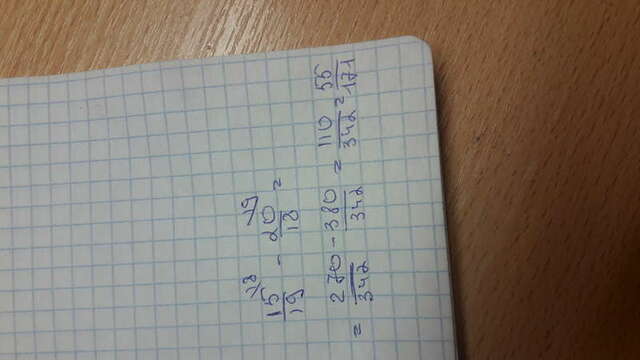 15/19 \18 - 20/18 \19 =
= 270/342 - 380/342 = 110/342 = 55/171